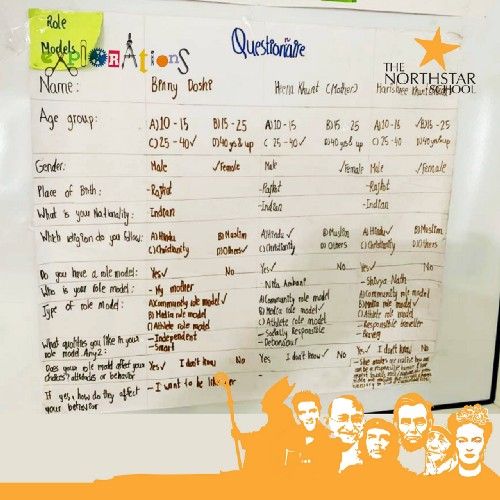 Role
Models
explorations
Questionaire
THE
NORTHSTAR
SCHOOL
Name: Binny Doshi Heena Khunt (Mother)
Age group: A) 10-15 B) 15-25 A) 10-15 B) 15 25 A) 10-15 ✓B) 15-25
C) 25-40 ✓ D) 40 yrs & up C) 25-40 ✓ D) 40 yrs & up C) 25-40 D) 40 yrs & up
Gender: Male ✓Female Male ✓Female Male ✓Female
Place of Birth: -Rajkot -Rajkot -Rajkot
What is your Nationality: -Indian -Indian -Indian
Which religion do you follow: A) Hindu B) Muslim A) Hindu ✓ B) Muslim A) Hindu ✓ B) Muslim
C) Christianity D) Others ✓ C) Christianity D) Others C) Christianity D) Others
Do you have a role model: Yes ✓ No Yes ✓ No Yes ✓ No
Who is your role model: - My mother Nita Ambani - Shivya Nath
Type of role model: A) Community role model ✓ A) Community role model A) Community role model
B) Media role model B) Media role model ✓ B) Media role model ✓
C) Athlete role model C) Athlete role model C) Athlete role model
What qualities you like in your - Independent - Socially Responsible - Responsible traveller
role model. Any 2: - Smart - Bravery
Does your role model affect your Yes ✓ I don't know No Yes I don't know ✓ No Yes ✓ I don't know No
choices? attitudes or behavior
If yes, how do they affect - I want to be like her
your behavior